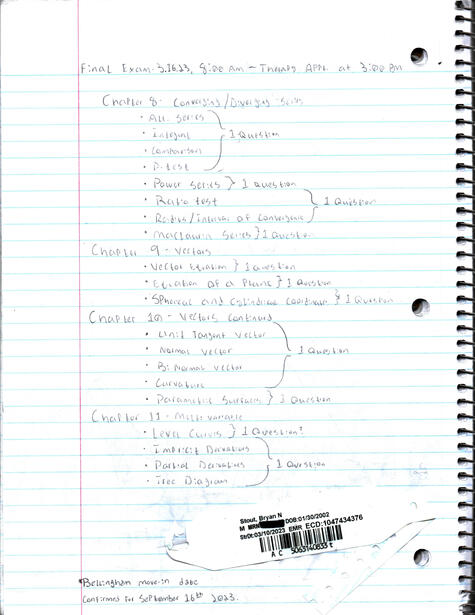 Final Exam 3.16.23, 8:00 Am - Therapy APPt. at 3:00 Pm
Chapter 8 - Converging/Diverging Series
• Alt. Series
• Integral } 1 Question
• Comparison
• P-test
• Power Series } 1 Question
• Ratio test } 1 Question
• Radius/Interval of Convergence
• Maclaurin Series } 1 Question
Chapter 9 - Vectors
• Vector Equation } 1 Question
• Equation of a Plane } 1 Question
• Spherical and Cylindrical Coordinates } 1 Question
Chapter 10 - Vectors Continued
• Unit Tangent Vector
• Normal Vector } 1 Question
• Bi Normal Vector
• Curvature
• Parametric Surfaces } 1 Question
Chapter 11 - Multivariable
• Level Curves } 1 Question?
• Implicit Derivatives
• Partial Derivatives } 1 Question
• Tree Diagram
Stout, Bryan N
M MRN DOB:01/30/2002
StrDt:03/10/2023 EMR ECD:1047434376
A C 5063140635
*Bellingham move-in date
Confirmed for September 16th 2023.